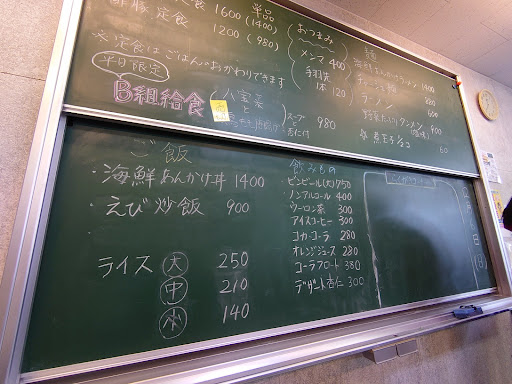 定食 1600 (1400)
酢豚定食 1200 (980)
※定食はごはんのおかわりできます
平日限定
B組給食
八宝菜
と
スープと
杏仁付
980
単品
おつまみ
メンマ 400
手羽先
1本 120
麺
海鮮あんかけラーメン 1400
ラーメン
タンメン
煮玉子
60
ご飯
・海鮮あんかけ丼 1400
・えび炒飯 900
・
ライス 大 250
中 210
小 140
飲みもの
ビンビール(大) 750
ノンアルコール 400
ウーロン茶 300
アイスコーヒー 300
コカ・コーラ 280
オレンジジュース 280
コーラフロート 380
デザート杏仁 300
月
日